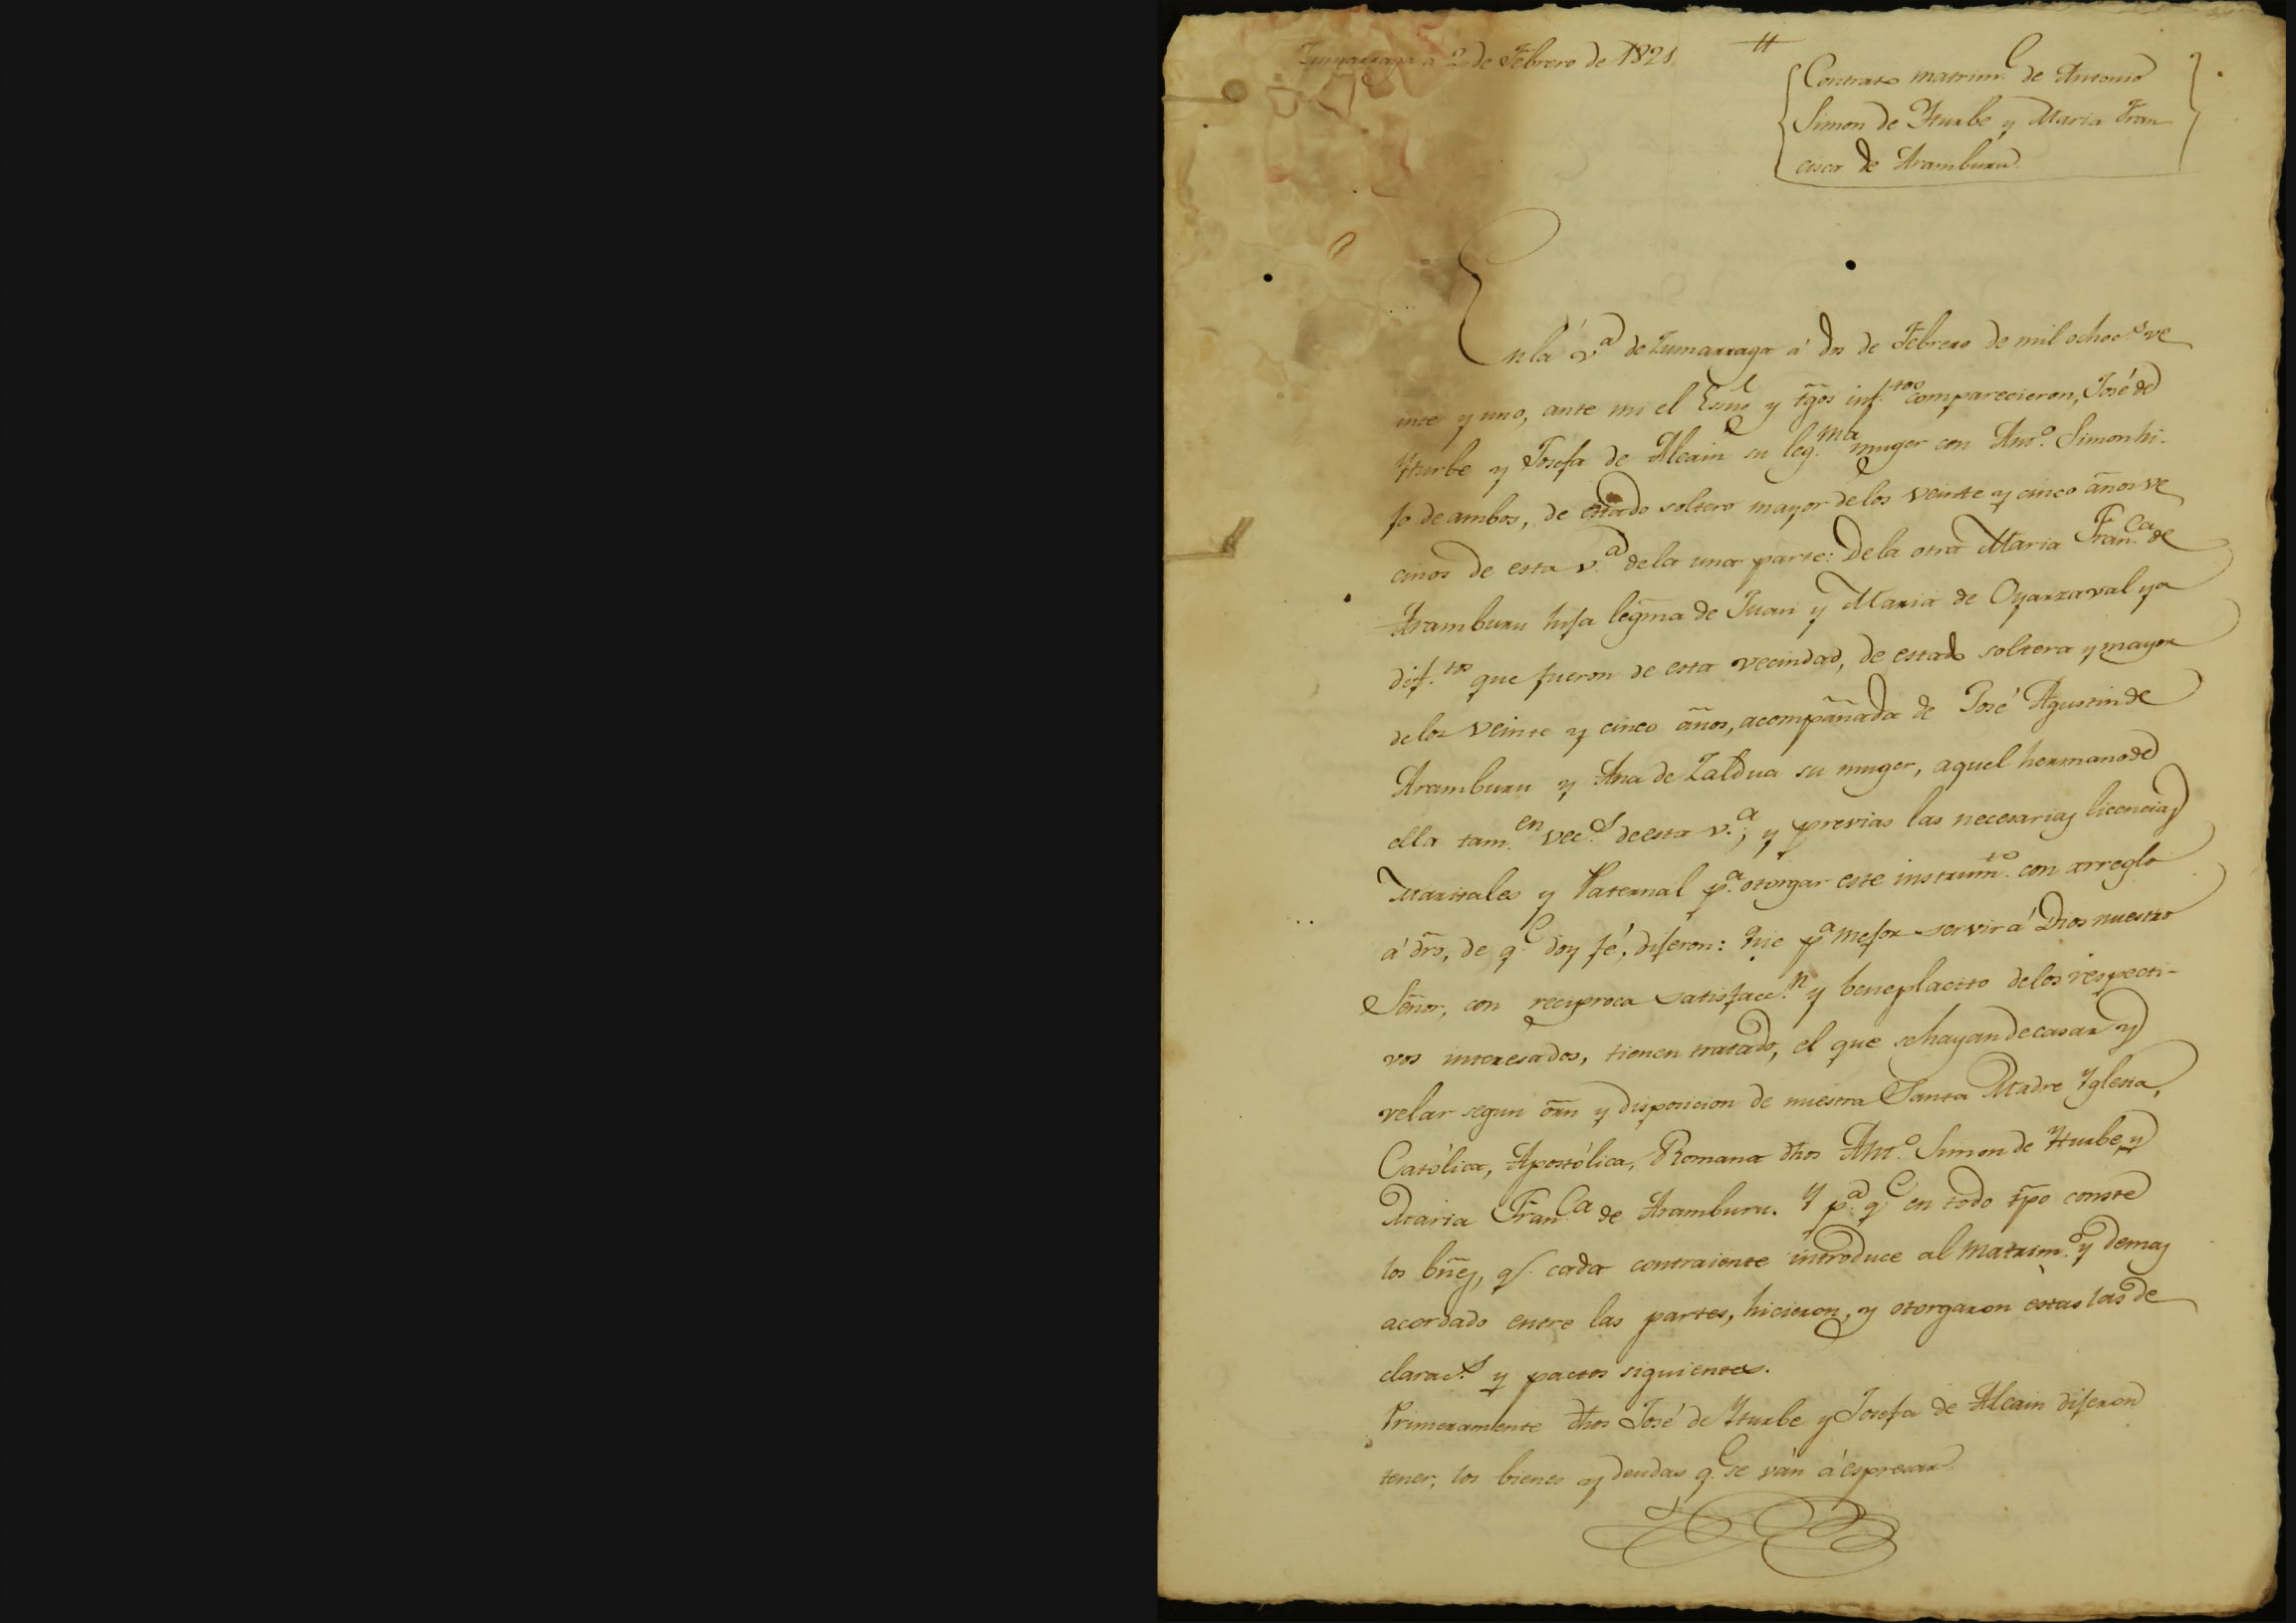 Zumarraga a 2 de Febrero de 1821
Contrato matrim.l de Antonio
Simon de Yturbe y Maria Fran
cisca de Aramburu.
En la v.a de Zumarraga á dos de Febrero de mil ochoc.s ve
inte y uno, ante mi el Esno y tgos inf.tos comparecieron, José de
Yturbe y Josefa de Alcain su leg.ma muger con Ant.o Simon hi-
jo de ambos, de estado soltero mayor de los veinte y cinco años ve
cinos de esta v.a de la una parte: De la otra Maria Fran.ca de
Aramburu hija legma de Juan y Maria de Oyarzaval ya
dif.tos que fueron de esta vecindad, de estado soltera y mayor
de los veinte y cinco años, acompañada de José Agustin de
Aramburu y Ana de Zaldua su muger, aquel hermano de
ella tam.en vec.s de esta v.a; y previas las necesarias licencias
Maritales y Paternal p.a otorgar este instrum.to con arreglo
á dro, de q.e doy fé, dijeron: Que p.a mejor servir á Dios nuestro
Señor, con reciproca satisfacc.n y beneplacito de los respecti-
vos interesados, tienen tratado, el que se hayan de casar y
velar segun orn y disposicion de nuestra Santa Madre Yglesia,
Católica, Apostólica, Romana dhos Ant.o Simon de Yturbe y
Maria Fran.ca de Aramburu. Y p.a q.e en todo tpo conste
los bñes, q.e cada contraiente introduce al matrim.o y demas
acordado entre las partes, hicieron, y otorgaron estas las de
clarac.s y pactos siguientes.
Primeramente dhos José de Yturbe y Josefa de Alcain dijeron
tener, los bienes y deudas q.e se ván á espresar.